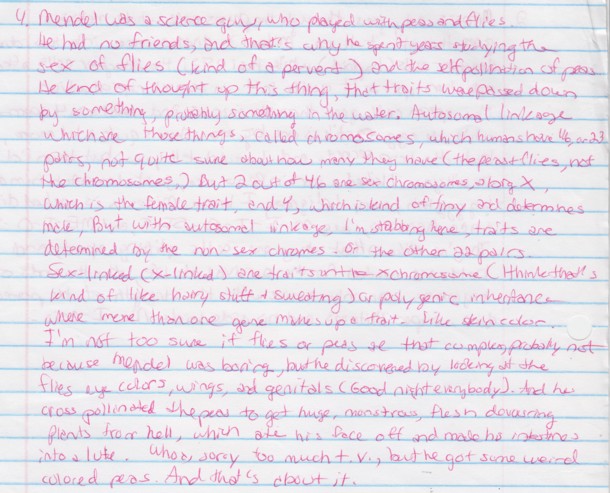 4. Mendel was a science guy, who played with peas and flies.
He had no friends, and that's why he spent years studying the
sex of flies (kind of a pervent) and the self pollination of peas
He kind of thought up this thing, that traits were passed down
by something, probably something in the water. Autosomal linkage
which are those things, called chromosomes, which humans have 46, or 23
pairs, not quite sure about how many they have (the peas + flies, not
the chromosomes,) But 2 out of 46 are sex chromosomes, X,
which is the female trait, and Y, which is kind of tiny and determines
male, But with autosomal linkage, I'm stabbing here, traits are
determined by the non-sex chromes. Or the other 22 pairs.
Sex-linked (X-linked) are traits on X chromosome (I think that's
kind of like hairy stuff + sweating) or polygenic inheritance
where more than one gene makes up a trait. Like skin color.
I'm not too sure if flies or peas are that complex, probably not
because Mendel was boring, but he discovered by looking at the
flies eye colors, wings, and genitals (Good night everybody). And he
cross pollinated the peas to get huge, monstrous, flesh devouring
plants from hell, which ate his face off and made his intestines
into a lute. Whoa, sorry too much t.v., but he got some weird
colored peas. And that's about it.